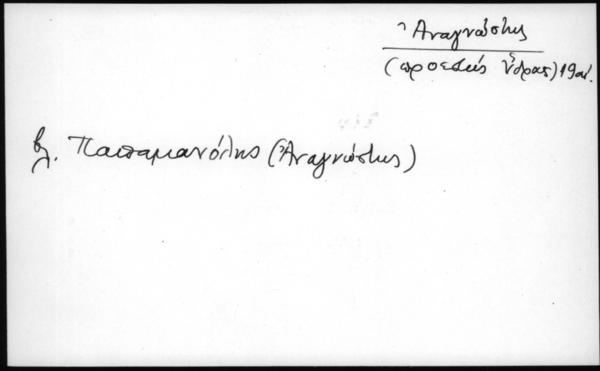 Ἀναγνώστης
(προεστώς Ὕδρας) 19 αἰ.
βλ. Παπαμανόλης (Ἀναγνώστης)